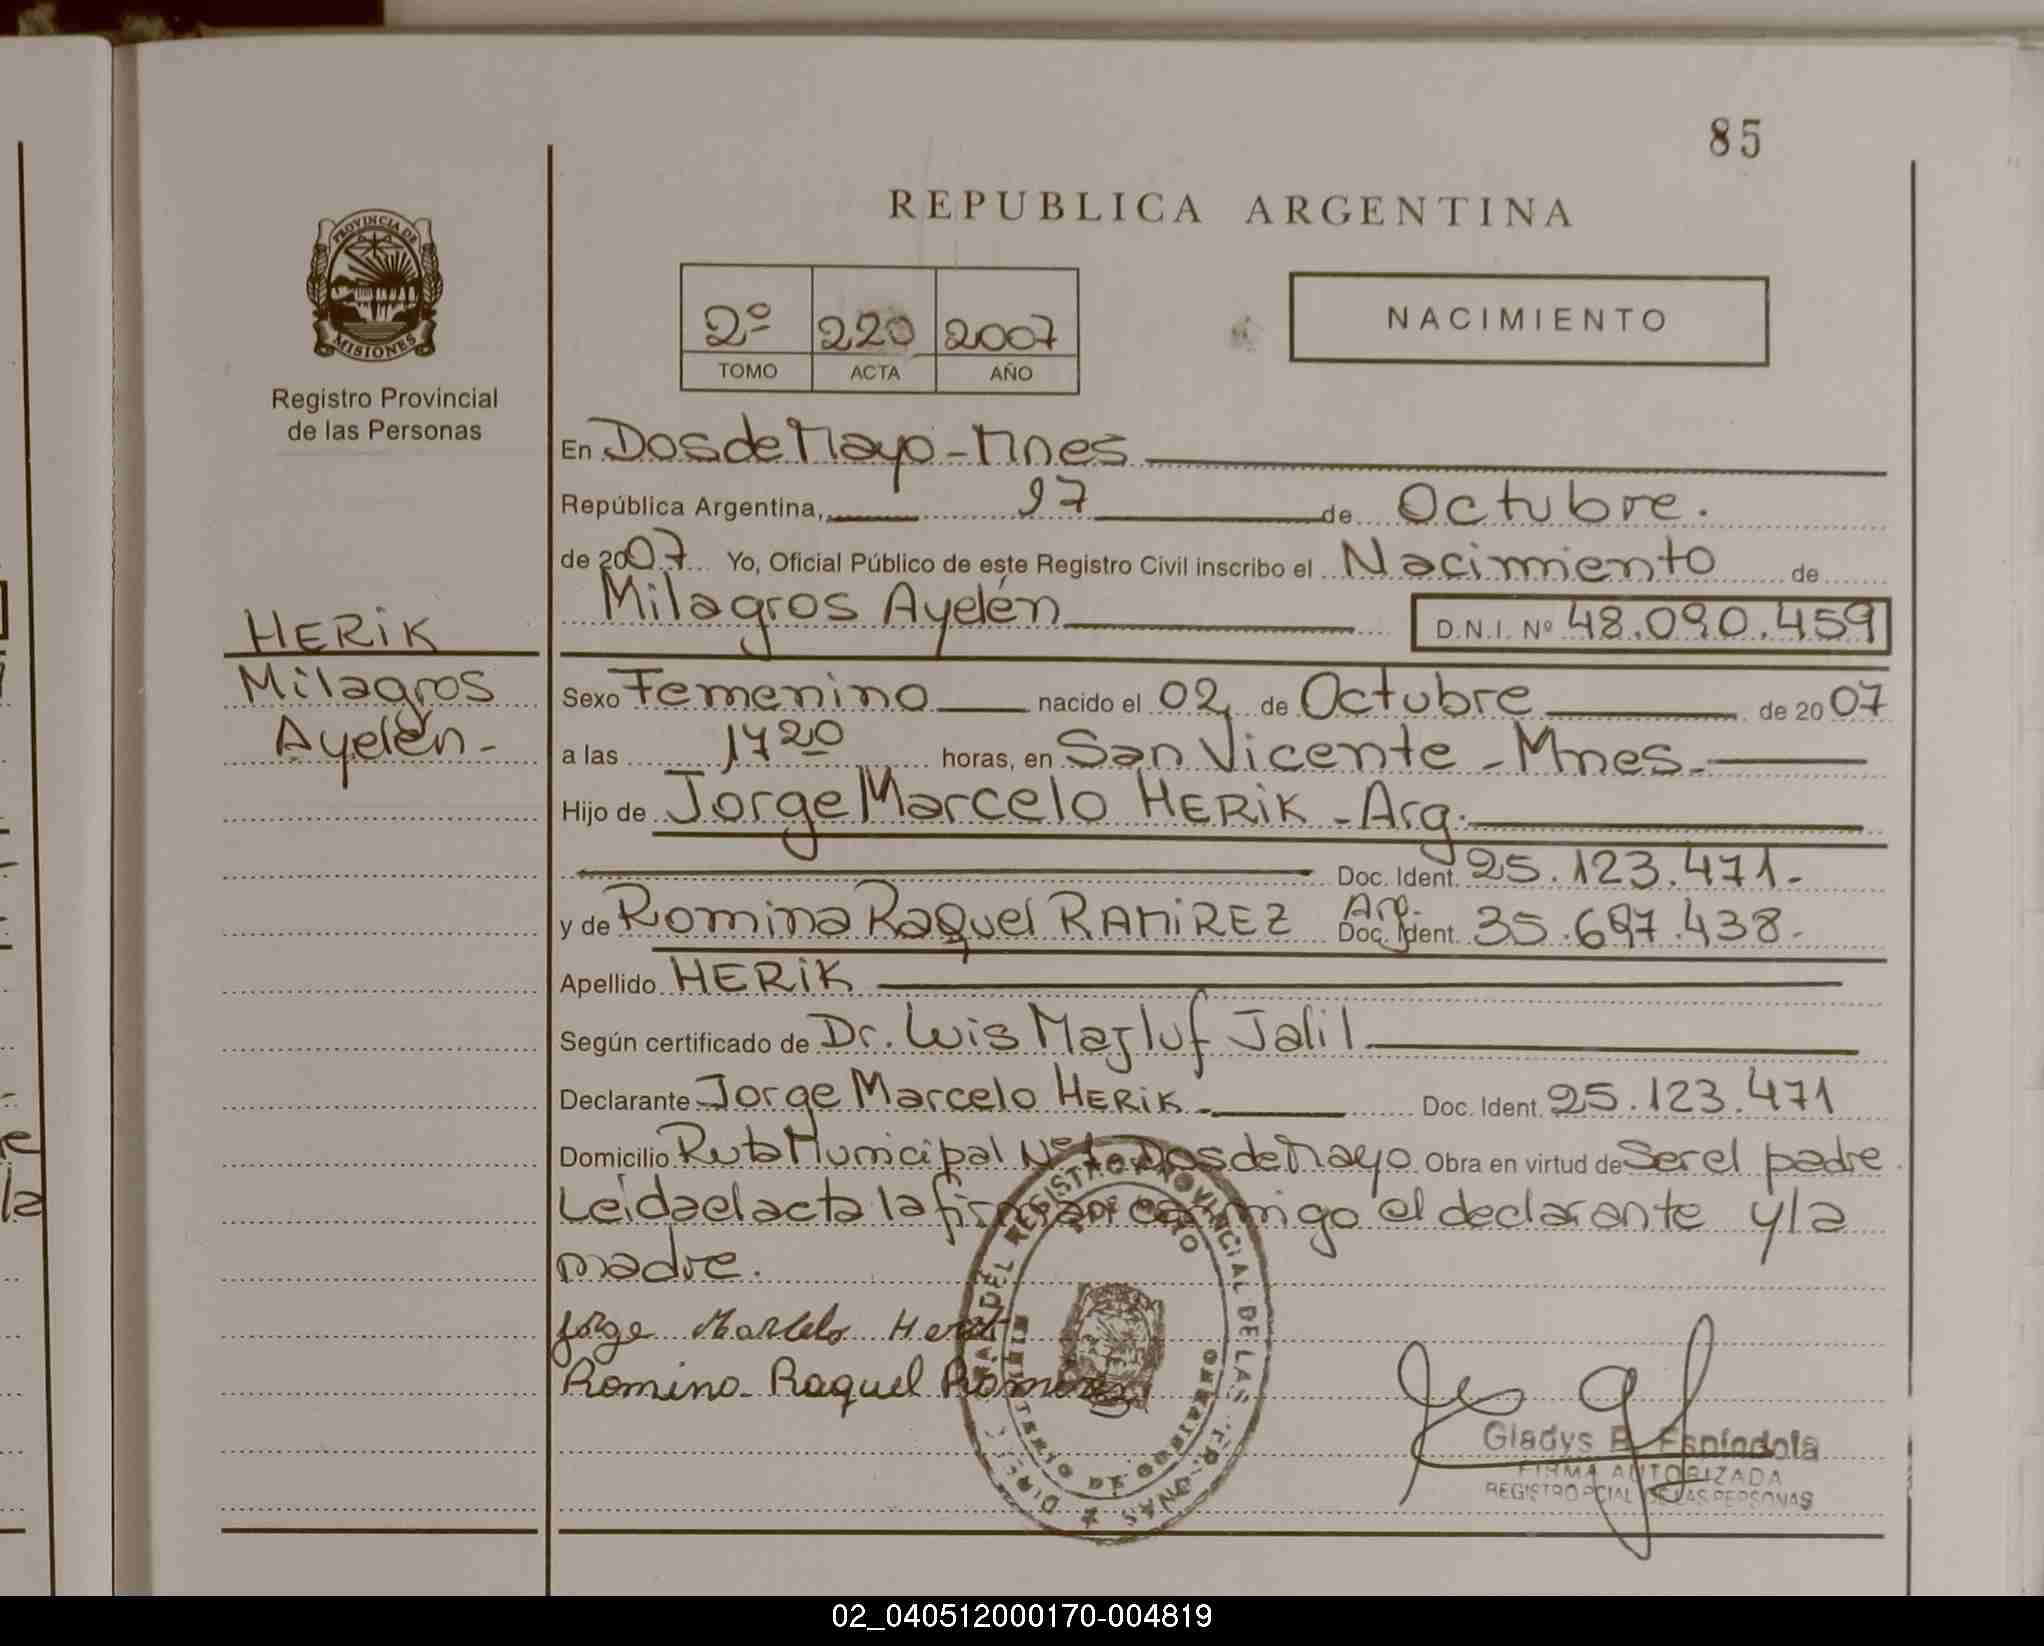 85
REPUBLICA ARGENTINA
PROVINCIA DE
MISIONES
Registro Provincial
de las Personas
2º 220 2007
TOMO ACTA AÑO
NACIMIENTO
En Dos de Mayo - Mnes
República Argentina, 17 de Octubre.
de 2007 Yo, Oficial Público de este Registro Civil inscribo el Nacimiento de
Milagros Ayelén D.N.I. Nº 48.090.459
HERIK
Milagros
Ayelén -
Sexo Femenino nacido el 02 de Octubre de 2007
a las 17 20 horas, en San Vicente - Mnes.
Hijo de Jorge Marcelo HERIK - Arg.
Doc. Ident. 25.123.471.-
y de Romina Raquel RAMIREZ Arg. Doc. Ident. 35.697.438.-
Apellido HERIK
Según certificado de Dr. Luis Majluf Jalil
Declarante Jorge Marcelo HERIK - Doc. Ident. 25.123.471
Domicilio Ruta Municipal Nº 1 - Dos de Mayo Obra en virtud de Ser el padre.
Leida el acta la firman conmigo el declarante y la
madre.
Jorge Marcelo Herik
Romina Raquel Ramirez
DEL REGISTRO PROVINCIAL DE LAS PERSONAS
Gladys E. Espíndola
FIRMA AUTORIZADA
REGISTRO PCIAL DE LAS PERSONAS
02_040512000170-004819